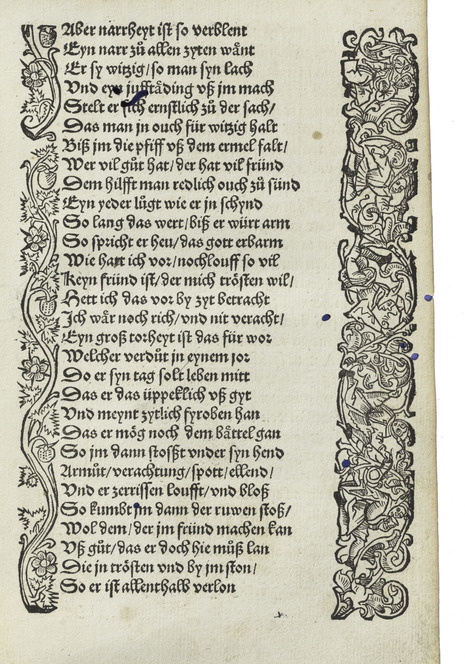 Aber narrheyt ist so verblent
Eyn narr zů allen zyten wånt
Er sy witzig/so man syn lach
Vnd eyn jufftåding vß jm mach
Stelt er sich ernstlich zů der sach/
Das man jn ouch für witzig halt
Biß jm die pfiff vß dem ermel falt/
Wer vil gůt hat/der hat vil fründ
Dem hilfft man redlich ouch zů sünd
Eyn yeder lůgt wie er jn schynd
So lang das wert/biß er würt arm
So spricht er heu/das gott erbarm
Wie hatt ich vor/nochlouff so vil
Keyn fründ ist/der mich trösten wil/
Hett ich das vor by zyt betracht
Jch wår noch rich/vnd nit veracht/
Eyn groß torheyt ist das für wor
Welcher verdůt jn eynem jor
Do er syn tag solt leben mitt
Das er das üppeklich vß gyt
Vnd meynt zytlich fyroben han
Das er mög noch dem båttel gan
So jm dann stosßt vnder syn hend
Armůt/verachtung/spott/ellend/
Vnd er zerrissen loufft/vnd bloß
So kumbt jm dann der ruwen stoß/
Wol dem/der jm fründ machen kan
Vß gůt/das er doch hie můß lan
Die jn trösten vnd by jm ston/
So er ist allenthalb verlon